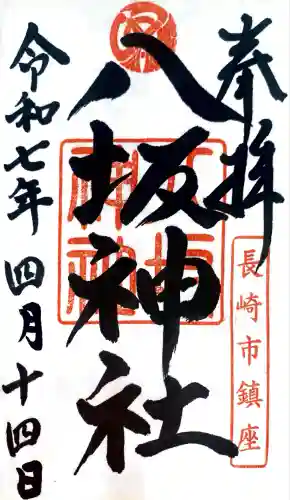 奉拝
長崎市鎮座
八坂神社
令和七年四月十四日